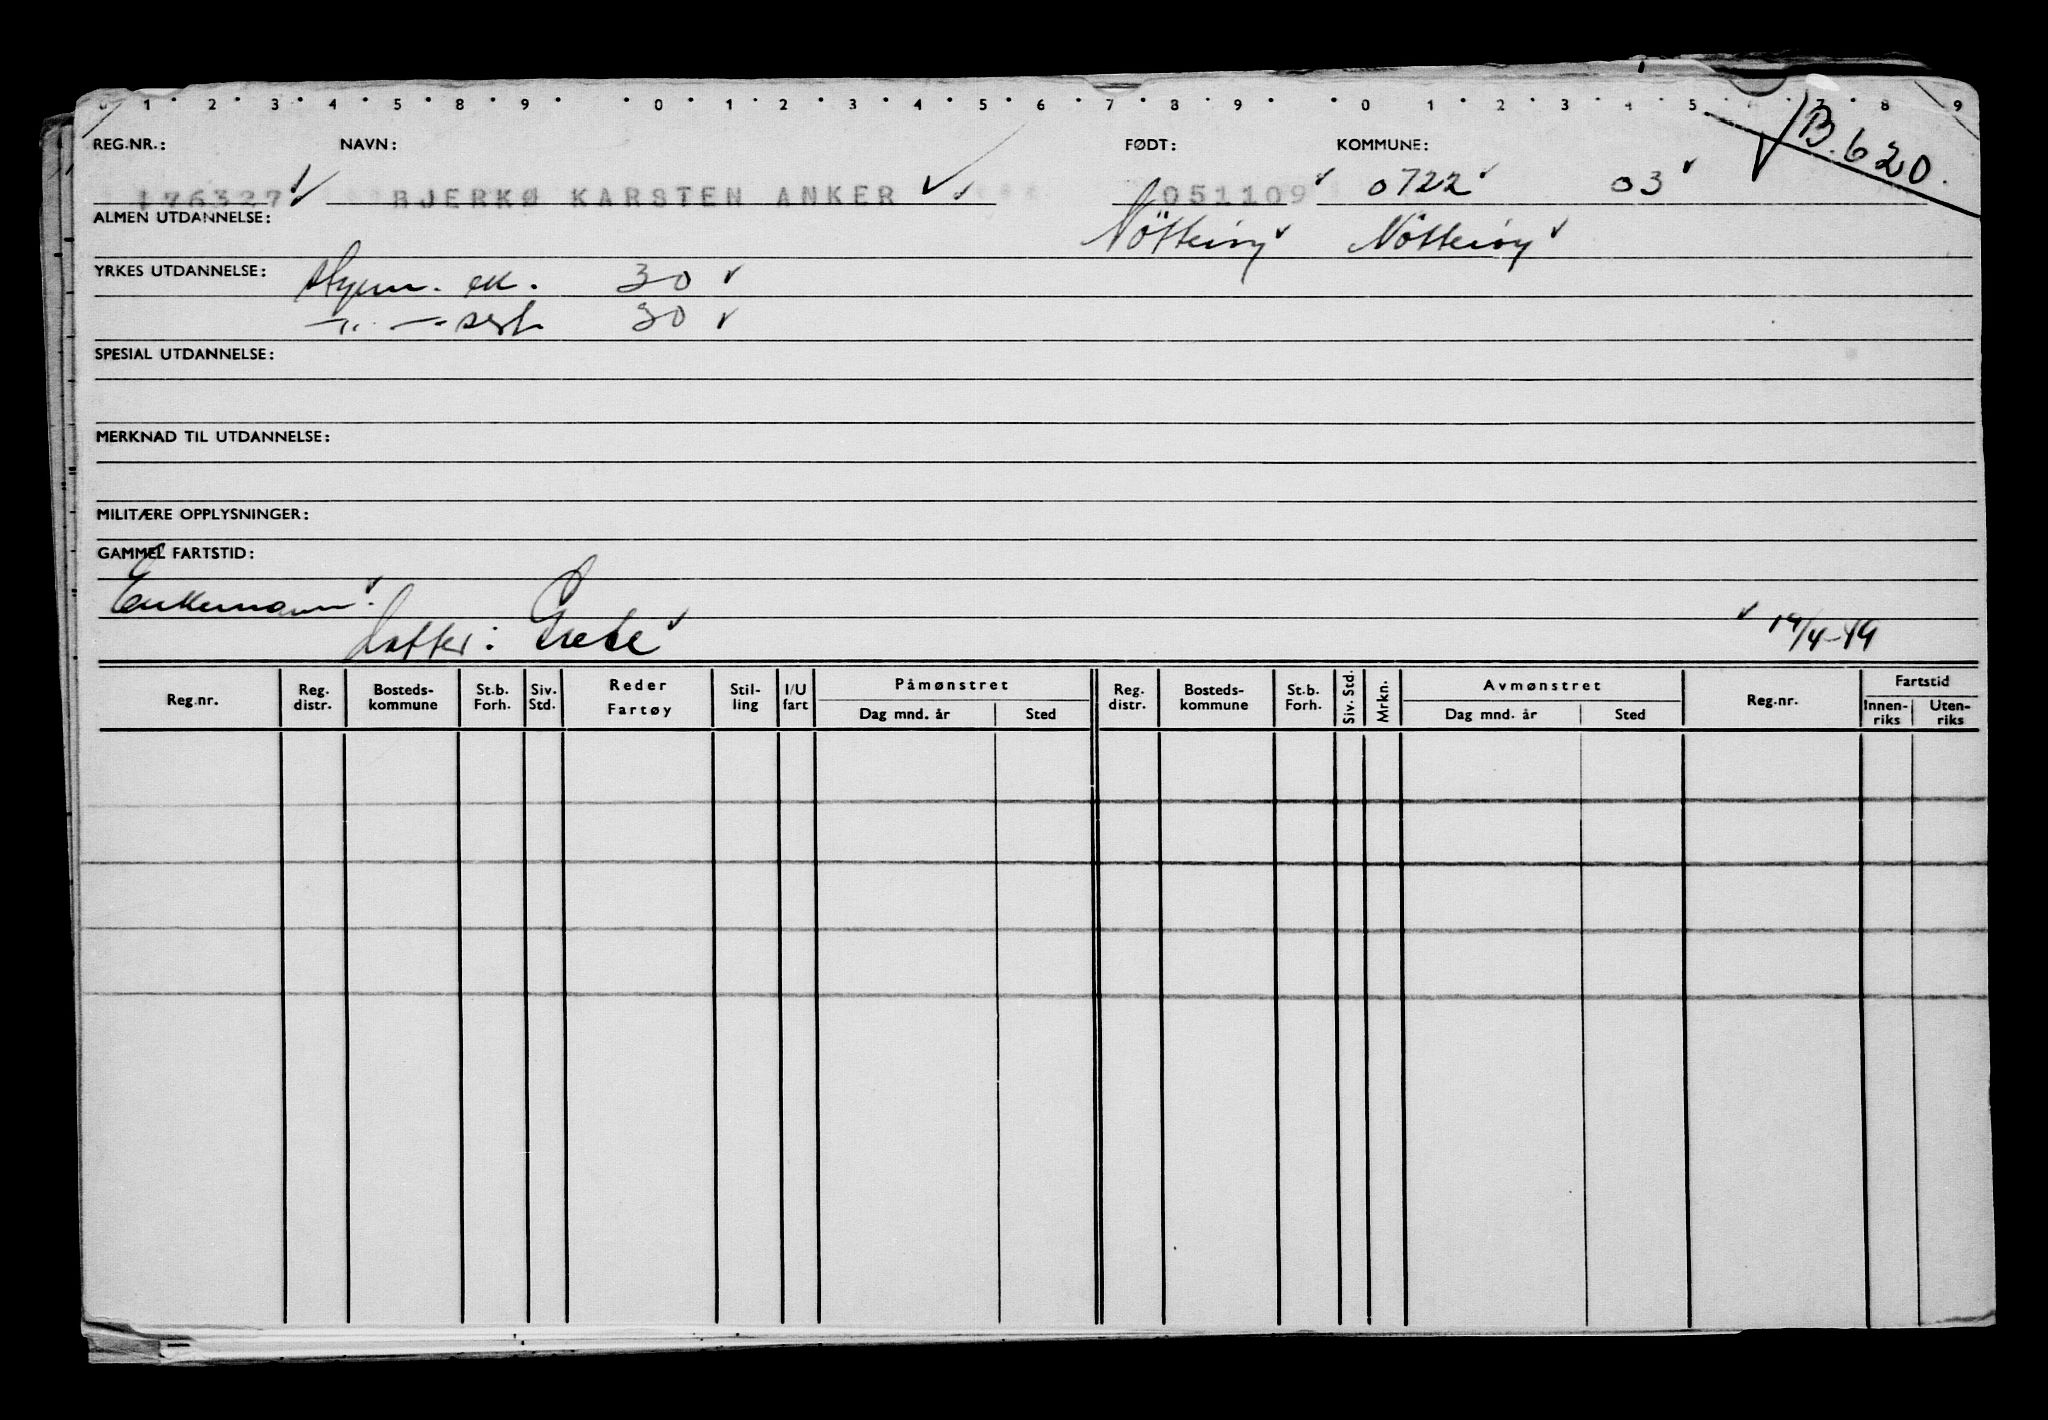 0 1 2 3 4 5 8 9 0 1 2 3 4 5 6 7 8 9 0 1 2 3 4 5 7 8 9
B.620.
REG.NR.: NAVN: FØDT: KOMMUNE:
176327 BJERKØ KARSTEN ANKER 051109 0722 03
ALMEN UTDANNELSE: Nötteröy Nötteröy
YRKES UTDANNELSE: Styrm. ex. 30
—"— sert 30
SPESIAL UTDANNELSE:
MERKNAD TIL UTDANNELSE:
MILITÆRE OPPLYSNINGER:
GAMMEL FARTSTID:
Enkemann.
Datter: Grete 19/4-49
Reg.nr. Reg. distr. Bosteds-kommune St.b. Forh. Siv. Std. Reder Fartøy Stil-ling I/U fart Påmønstret Dag mnd. år Sted Reg. distr. Bosteds-kommune St.b. Forh. Siv. Std. Mrkn. Avmønstret Dag mnd. år Sted Reg.nr. Fartstid Innen-riks Uten-riks